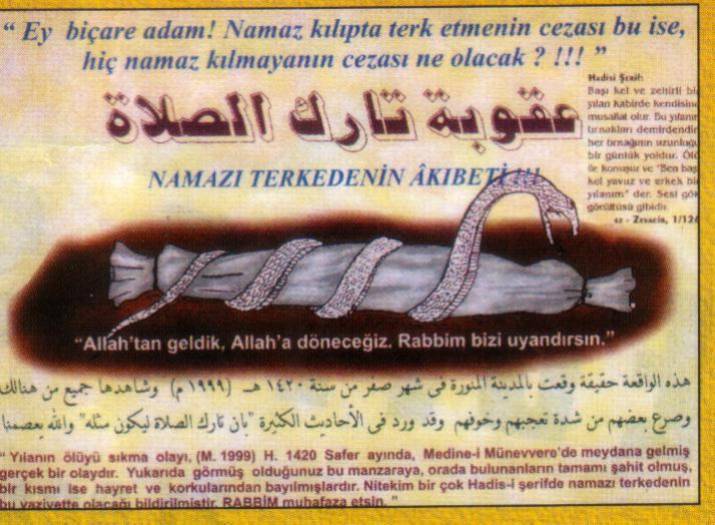 “ Ey biçare adam! Namaz kılıpta terk etmenin cezası bu ise,
hiç namaz kılmayanın cezası ne olacak ? !!! ”
عقوبة تارك الصلاة
Hadisi Şerif:
Başı kel ve zehirli bi
yılan kabirde kendisine
musallat olur. Bu yılanın
tırnakları demirdendir
her tırnağının uzunluğu
bir günlük yoldur. Ölü
ile konuşur ve "Ben başı
kel yavuz ve erkek bi
yılanım" der. Sesi gök
gürültüsü gibidir.
- Zevacir, 1/124
NAMAZI TERKEDENİN ÂKIBETİ !!!
“Allah’tan geldik, Allah’a döneceğiz. Rabbim bizi uyandırsın.”
هذه الواقعة حقيقة وقعت بالمدينة المنورة فى شهر صفر من سنة ١٤٢٠ هـ (١٩٩٩ م) وشاهدها جميع من هنالك
وصرع بعضهم من شدة تعجبهم وخوفهم وقد ورد فى الأحاديث الكثيرة "بان تارك الصلاة ليكون مثله" والله يعصمنا
“ Yılanın ölüyü sıkma olayı, (M. 1999) H. 1420 Safer ayında, Medine-i Münevvero’de meydana gelmiş
gerçek bir olaydır. Yukarıda görmüş olduğunuz bu manzaraya, orada bulunanların tamamı şahit olmuş,
bir kısmı ise hayret ve korkularından bayılmışlardır. Nitekim bir çok Hadis-i şerifde namazı terkedenin
bu vaziyette olacağı bildirilmiştir. RABBİM muhafaza etsin. ”